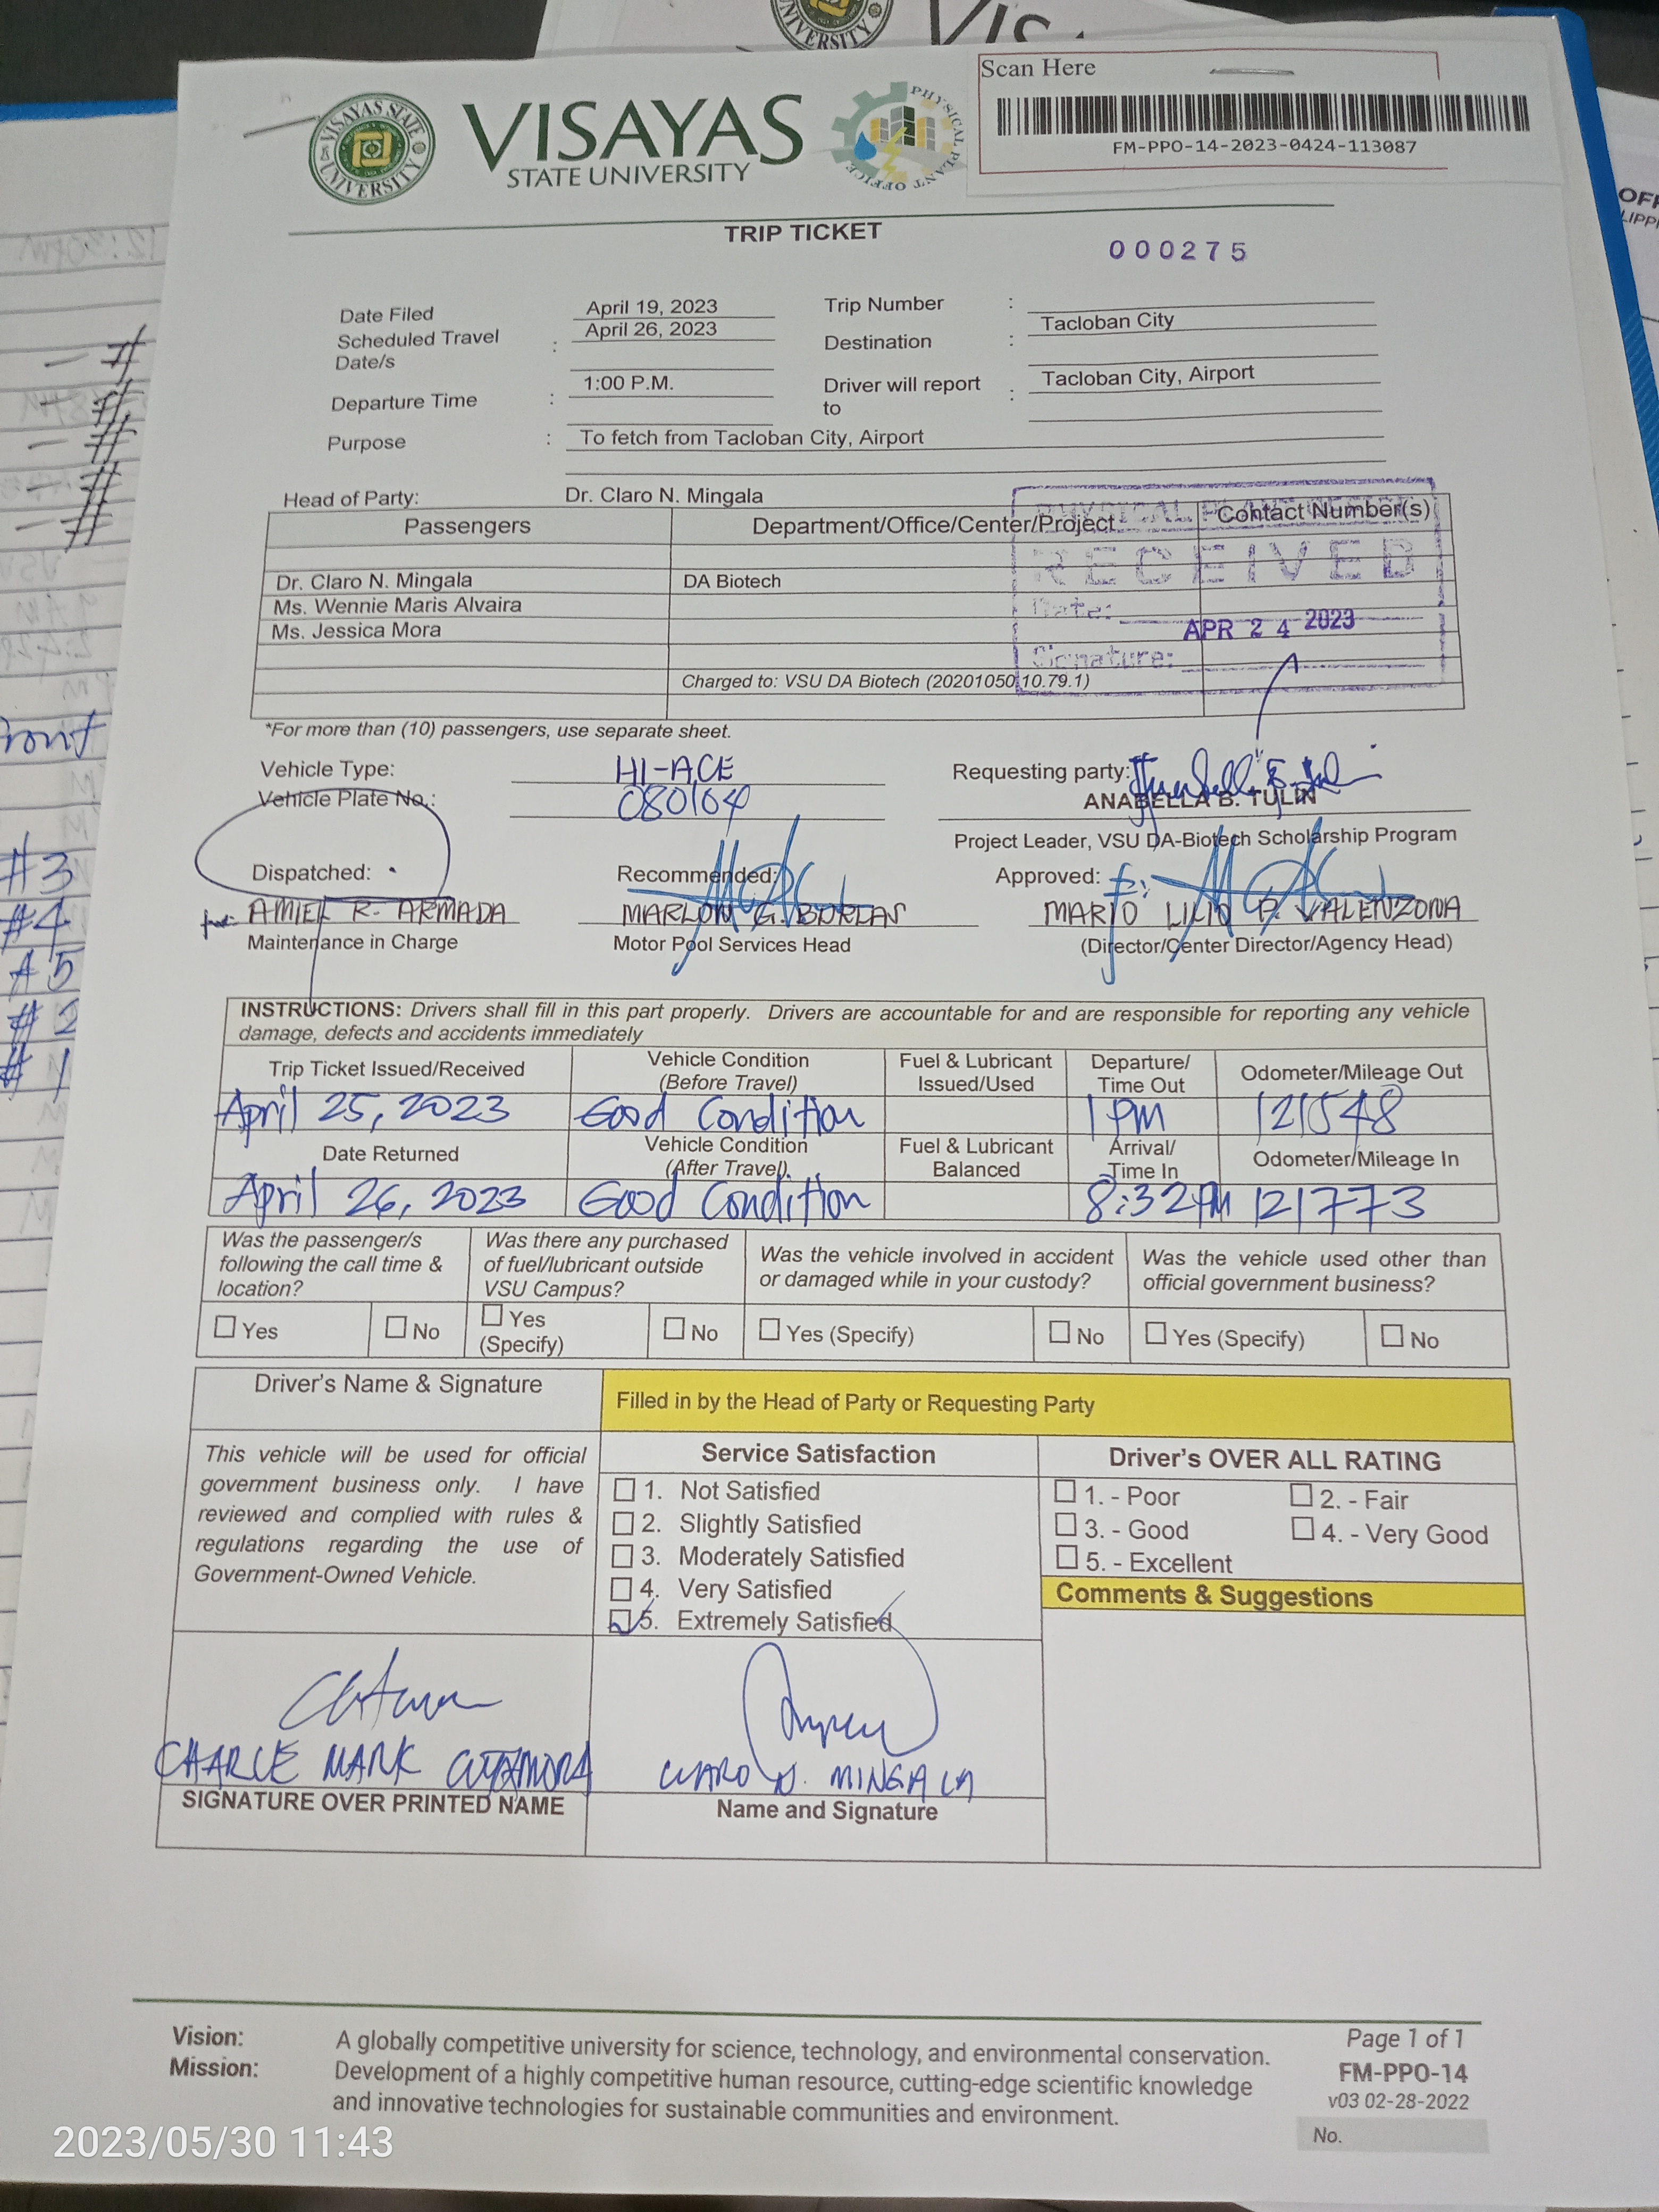 Scan Here
FM-PPO-14-2023-0424-113087
VISAYAS STATE UNIVERSITY
VISAYAS
STATE UNIVERSITY
PHYSICAL PLANT OFFICE
TRIP TICKET
000275
Date Filed April 19, 2023 Trip Number :
Scheduled Travel Date/s : April 26, 2023 Destination : Tacloban City
Departure Time : 1:00 P.M. Driver will report to : Tacloban City, Airport
Purpose : To fetch from Tacloban City, Airport
Head of Party: Dr. Claro N. Mingala
Passengers Department/Office/Center/Project Contact Number(s)
RECEIVED
Dr. Claro N. Mingala DA Biotech
Ms. Wennie Maris Alvaira
Date: APR 24 2023
Ms. Jessica Mora
Signature:
Charged to: VSU DA Biotech (20201050.10.79.1)
*For more than (10) passengers, use separate sheet.
Vehicle Type: HI-ACE Requesting party:
Vehicle Plate No.: 080104 ANABELLA B. TULIN
Project Leader, VSU DA-Biotech Scholarship Program
Dispatched: Recommended: Approved:
for: AMIEL R. ARMADA MARLON G. BURLAS MARIO LILIO P. VALENZONA
Maintenance in Charge Motor Pool Services Head (Director/Center Director/Agency Head)
INSTRUCTIONS: Drivers shall fill in this part properly. Drivers are accountable for and are responsible for reporting any vehicle
damage, defects and accidents immediately
Trip Ticket Issued/Received Vehicle Condition (Before Travel) Fuel & Lubricant Issued/Used Departure/ Time Out Odometer/Mileage Out
April 25, 2023 Good Condition 1 PM 121548
Date Returned Vehicle Condition (After Travel) Fuel & Lubricant Balanced Arrival/ Time In Odometer/Mileage In
April 26, 2023 Good Condition 8:32PM 121773
Was the passenger/s following the call time & location? Was there any purchased of fuel/lubricant outside VSU Campus? Was the vehicle involved in accident or damaged while in your custody? Was the vehicle used other than official government business?
Yes No Yes (Specify) No Yes (Specify) No Yes (Specify) No
Driver's Name & Signature Filled in by the Head of Party or Requesting Party
This vehicle will be used for official
government business only. I have
reviewed and complied with rules &
regulations regarding the use of
Government-Owned Vehicle.
Service Satisfaction
1. Not Satisfied
2. Slightly Satisfied
3. Moderately Satisfied
4. Very Satisfied
5. Extremely Satisfied
Driver's OVER ALL RATING
1. - Poor 2. - Fair
3. - Good 4. - Very Good
5. - Excellent
Comments & Suggestions
CHARLE MARK CLARO N. MINGALA
SIGNATURE OVER PRINTED NAME Name and Signature
Vision: A globally competitive university for science, technology, and environmental conservation.
Mission: Development of a highly competitive human resource, cutting-edge scientific knowledge
and innovative technologies for sustainable communities and environment.
Page 1 of 1
FM-PPO-14
v03 02-28-2022
No.
2023/05/30 11:43
#3
#4
#5
#2
#1